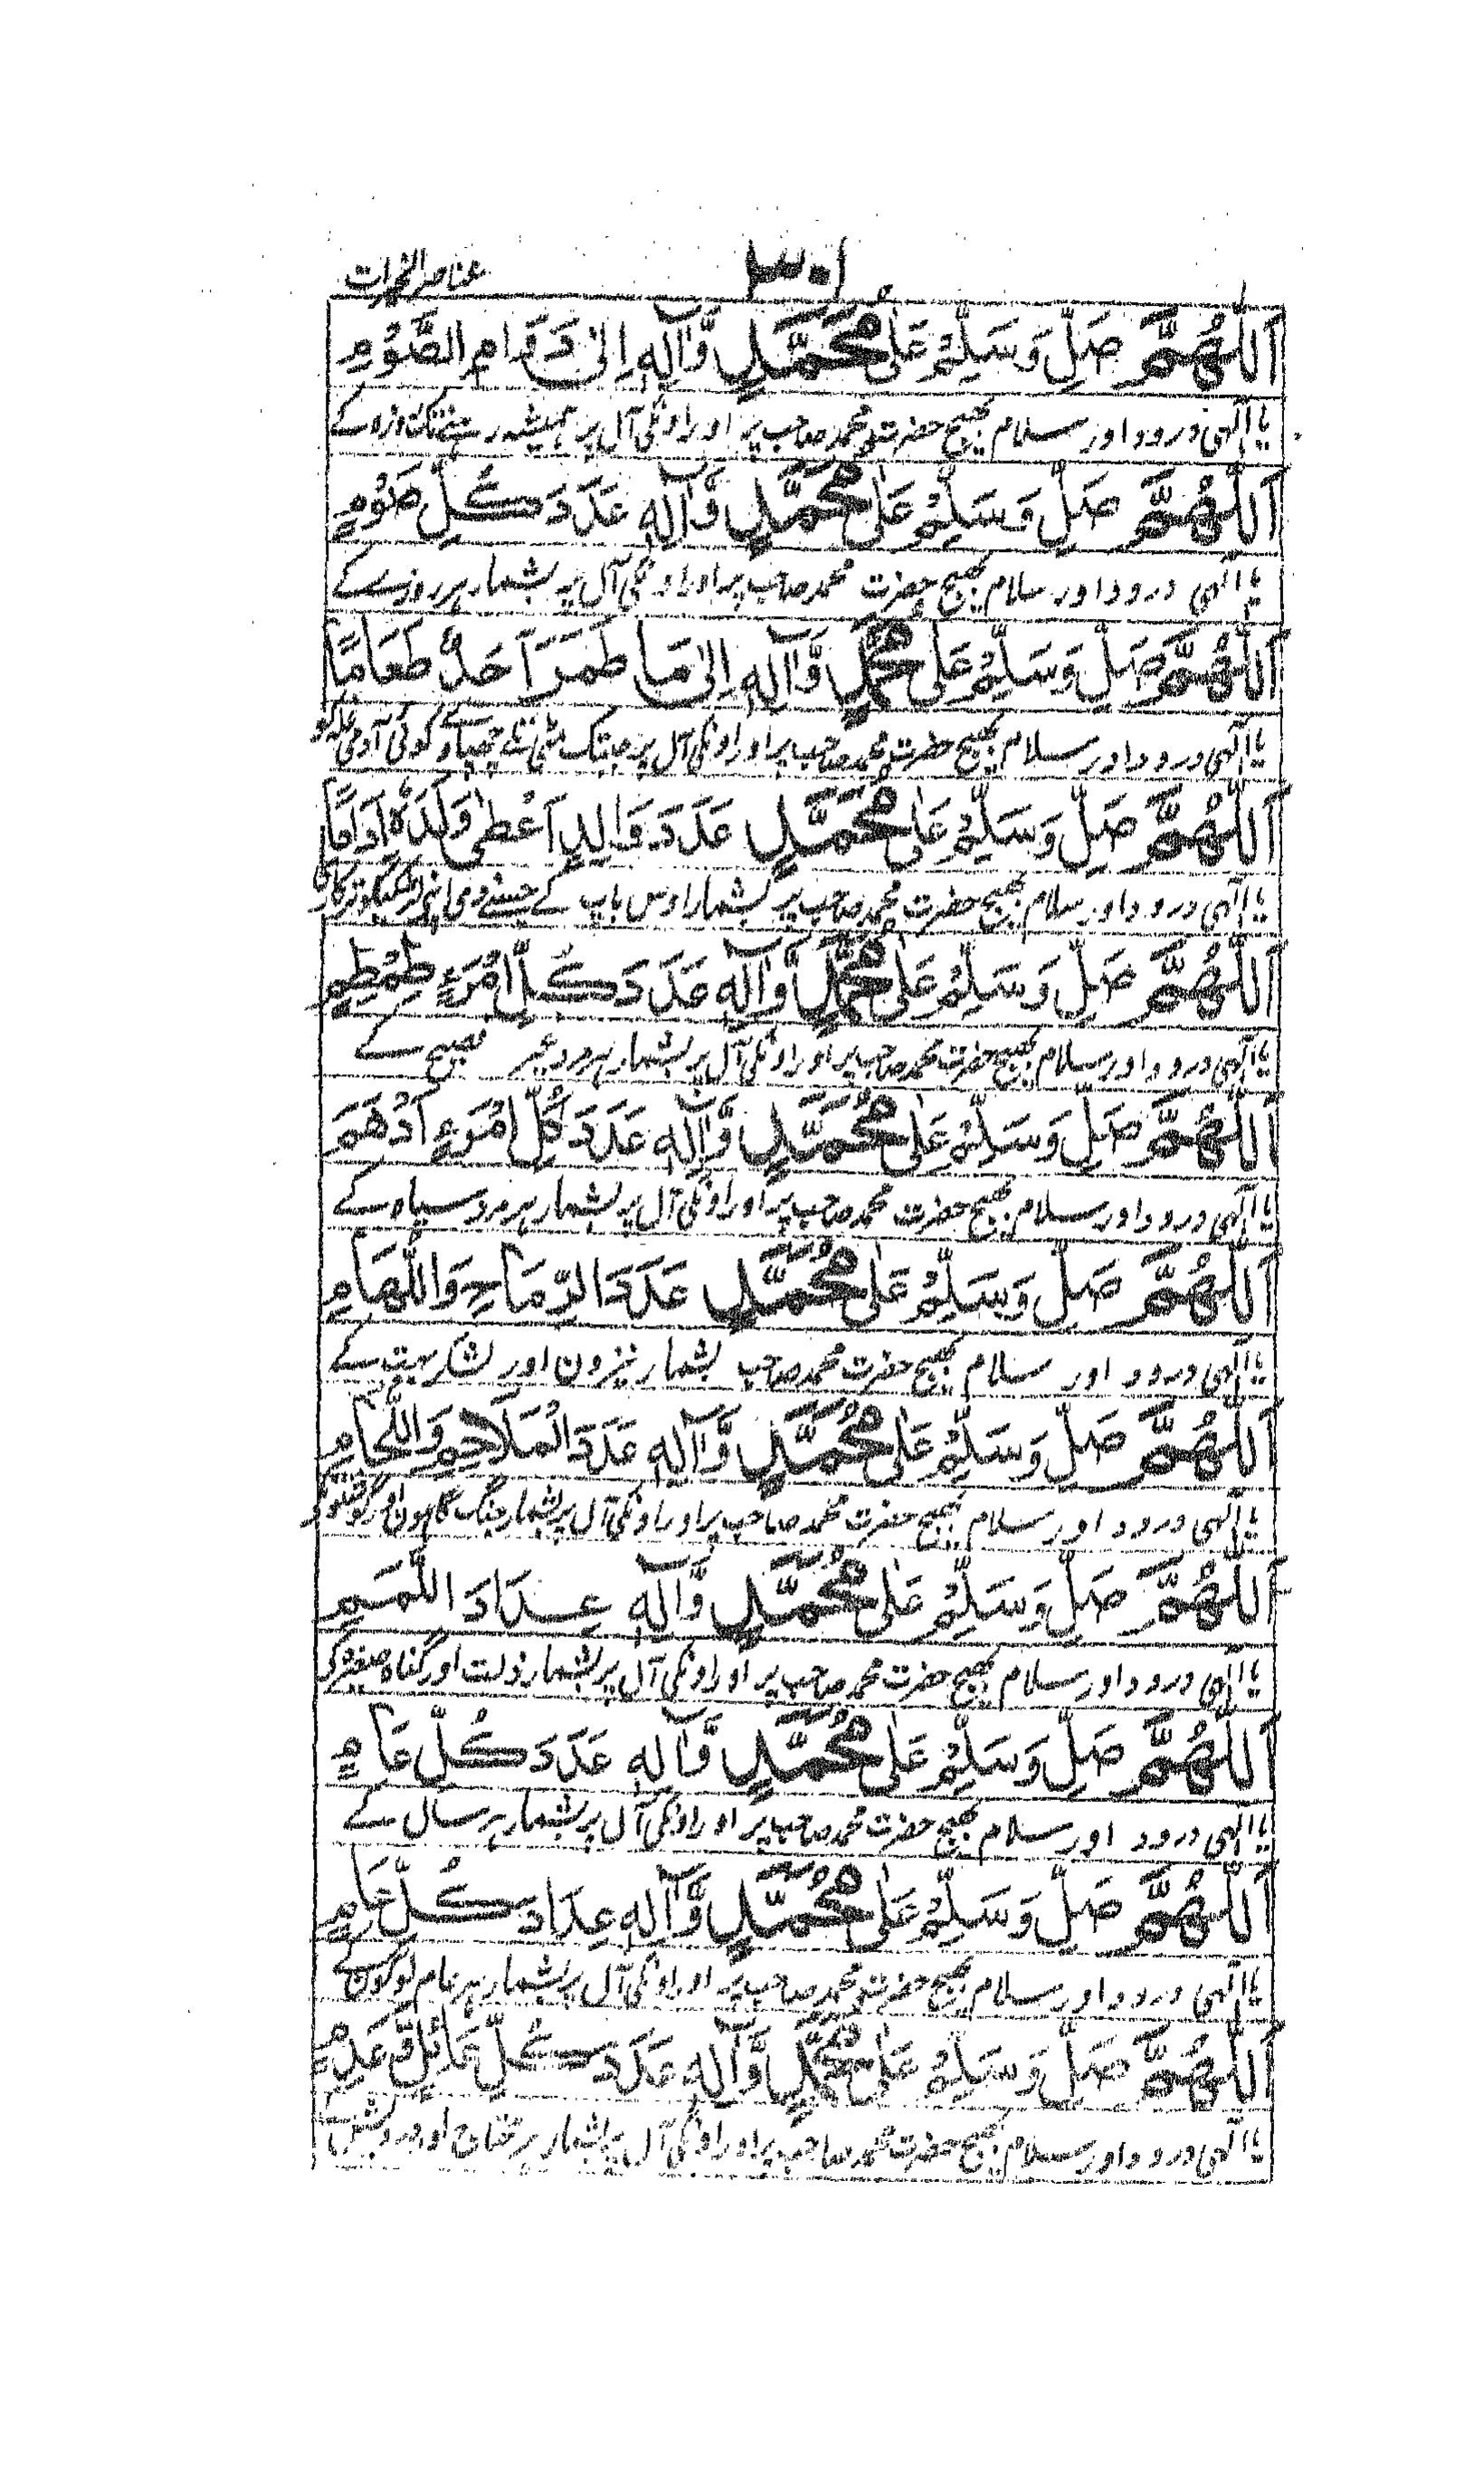 ۳۰۱
عناصر الخیرات
اَللّٰهُمَّ صَلِّ وَسَلِّمْ عَلٰی مُحَمَّدٍ وَّاٰلِهٖ اِلٰی دَوَامِ الصَّوْمِ
یا الٰہی درود اور سلام بھیج حضرت محمد صاحب پر اور اونکی آل پر ہمیشہ رہنے تک روزہ کے
اَللّٰهُمَّ صَلِّ وَسَلِّمْ عَلٰی مُحَمَّدٍ وَّاٰلِهٖ عَدَدَ كُلِّ صَوْمٍ
یا الٰہی درود اور سلام بھیج حضرت محمد صاحب پر اور اونکی آل پر بشمار ہر روزے کے
اَللّٰهُمَّ صَلِّ وَسَلِّمْ عَلٰی مُحَمَّدٍ وَّاٰلِهٖ اِلٰی مَا طَمَرَ اَحَدٌ طَعَامًا
یا الٰہی درود اور سلام بھیج حضرت محمد صاحب پر اور اونکی آل پر جبتک مٹی تلے چھپاوے کوئی آدمی غلہ کو
اَللّٰهُمَّ صَلِّ وَسَلِّمْ عَلٰی مُحَمَّدٍ عَدَدَ وَالِدٍ اَعْطٰی وَلَدَهٗ اِدَامًا
یا الٰہی درود اور سلام بھیج حضرت محمد صاحب پر بشمار اوس باپ کے جسنے دی اپنے
اَللّٰهُمَّ صَلِّ وَسَلِّمْ عَلٰی مُحَمَّدٍ وَّاٰلِهٖ عَدَدَ كُلِّ امْرَءٍ طِمْطِمٍ
یا الٰہی درود اور سلام بھیج حضرت محمد صاحب پر اور اونکی آل پر بشمار ہر مرد غیر فصیح کے
اَللّٰهُمَّ صَلِّ وَسَلِّمْ عَلٰی مُحَمَّدٍ وَّاٰلِهٖ عَدَدَ كُلِّ امْرَءٍ اَدْهَمَ
یا الٰہی درود اور سلام بھیج حضرت محمد صاحب پر اور اونکی آل پر بشمار ہر مرد سیاہ کے
اَللّٰهُمَّ صَلِّ وَسَلِّمْ عَلٰی مُحَمَّدٍ عَدَدَ الرِّمَاحِ وَاللُّهَامِ
یا الٰہی درود اور سلام بھیج حضرت محمد صاحب بشمار نیزون اور لشکر بہت کے
اَللّٰهُمَّ صَلِّ وَسَلِّمْ عَلٰی مُحَمَّدٍ وَّاٰلِهٖ عَدَدَ الْمَلَاحِمِ وَاللِّحَامِ
یا الٰہی درود اور سلام بھیج حضرت محمد صاحب پر اور اونکی آل پر بشمار جنگ گاہون اور
اَللّٰهُمَّ صَلِّ وَسَلِّمْ عَلٰی مُحَمَّدٍ وَّاٰلِهٖ عِدَادَ اللَّمَمِ
یا الٰہی درود اور سلام بھیج حضرت محمد صاحب پر اور اونکی آل پر بشمار ذلت اور گناہ صغیرہ کی
اَللّٰهُمَّ صَلِّ وَسَلِّمْ عَلٰی مُحَمَّدٍ وَّاٰلِهٖ عَدَدَ كُلِّ عَامٍ
یا الٰہی درود اور سلام بھیج حضرت محمد صاحب پر اور اونکی آل پر بشمار ہر سال کے
اَللّٰهُمَّ صَلِّ وَسَلِّمْ عَلٰی مُحَمَّدٍ وَّاٰلِهٖ عِدَادَ كُلِّ عَامٍ
یا الٰہی درود اور سلام بھیج حضرت محمد صاحب پر اور اونکی آل پر بشمار ہر عام لوگون کے
اَللّٰهُمَّ صَلِّ وَسَلِّمْ عَلٰی مُحَمَّدٍ وَّاٰلِهٖ عَدَدَ كُلِّ عَائِلٍ
یا الٰہی درود اور سلام بھیج حضرت محمد صاحب پر اور اونکی آل پر بشمار ہر محتاج اور درویش